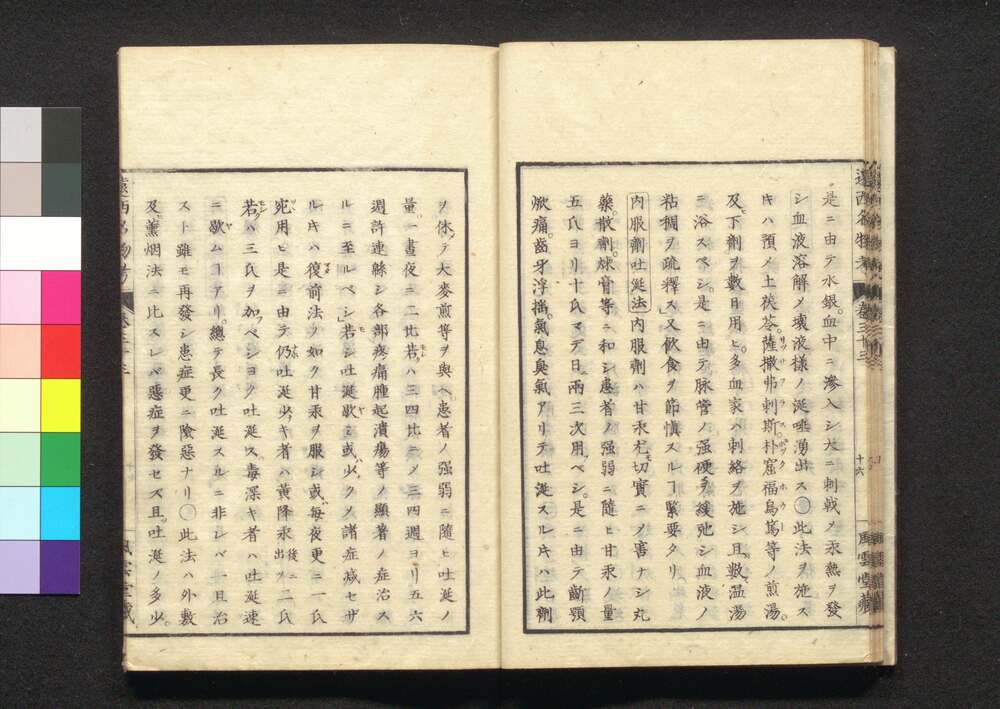 是ニ由テ水銀。血中ニ滲入シ大ニ刺戟メ汞熱ヲ發
シ血液溶解メ壊液樣ノ涎唾湧出ス○此法ヲ施ス
キハ預メ土茯苓。薩撒弗剌斯朴窟福烏篤等ノ煎湯。
及下劑ヲ數日用ヒ。多血家ハ刺絡ヲ施シ且數温湯
ニ浴スベシ。是ニ由テ脉管ノ强硬ヲ緩弛シ血液ノ
粘稠ヲ疏釋ス又飲食ヲ節慎スルヿ緊要タリ
内服劑吐涎法 内服劑ハ甘汞尤切實ニメ害ナシ丸
藥散劑。煉膏等ニ和シ患者ノ强弱ニ隨ヒ甘汞ノ量
五氏ヨリ十氏マデ日兩三次用ベシ。是ニ由テ齗顎
焮痛。齒牙浮揺。氣息臭氣アリテ吐涎スルキハ此劑
ヲ休テ大麥煎等ヲ與ヘ患者ノ强弱ニ隨ヒ吐涎ノ
量。一晝夜ニ二比若ハ三四比ニメ三四週ヨリ五六
週許連緜シ各部疼痛腫起潰瘍等ノ顯著ノ症治ス
ルニ至ルベシ若シ吐涎歇ミ或少クメ諸症减セザ
ルキハ復前法ノ如ク甘汞ヲ服シ或毎夜更ニ一氏
宛用ヒ是ニ由テ仍吐涎少キ者ハ黄降汞後ニ出ス二氏
若ハ三氏ヲ加ベショク吐涎ス毒深キ者ハ吐涎速
ニ歇ムヿアリ。總テ長ク吐涎スルニ非レバ一旦治
スト雖モ再發シ患症更ニ險惡ナリ○此法ハ外敷
及薰烟法ニ比スレバ惡症ヲ發セズ且。吐涎ノ多少。
遠西名物考
卷三十三
十六
風雲堂藏